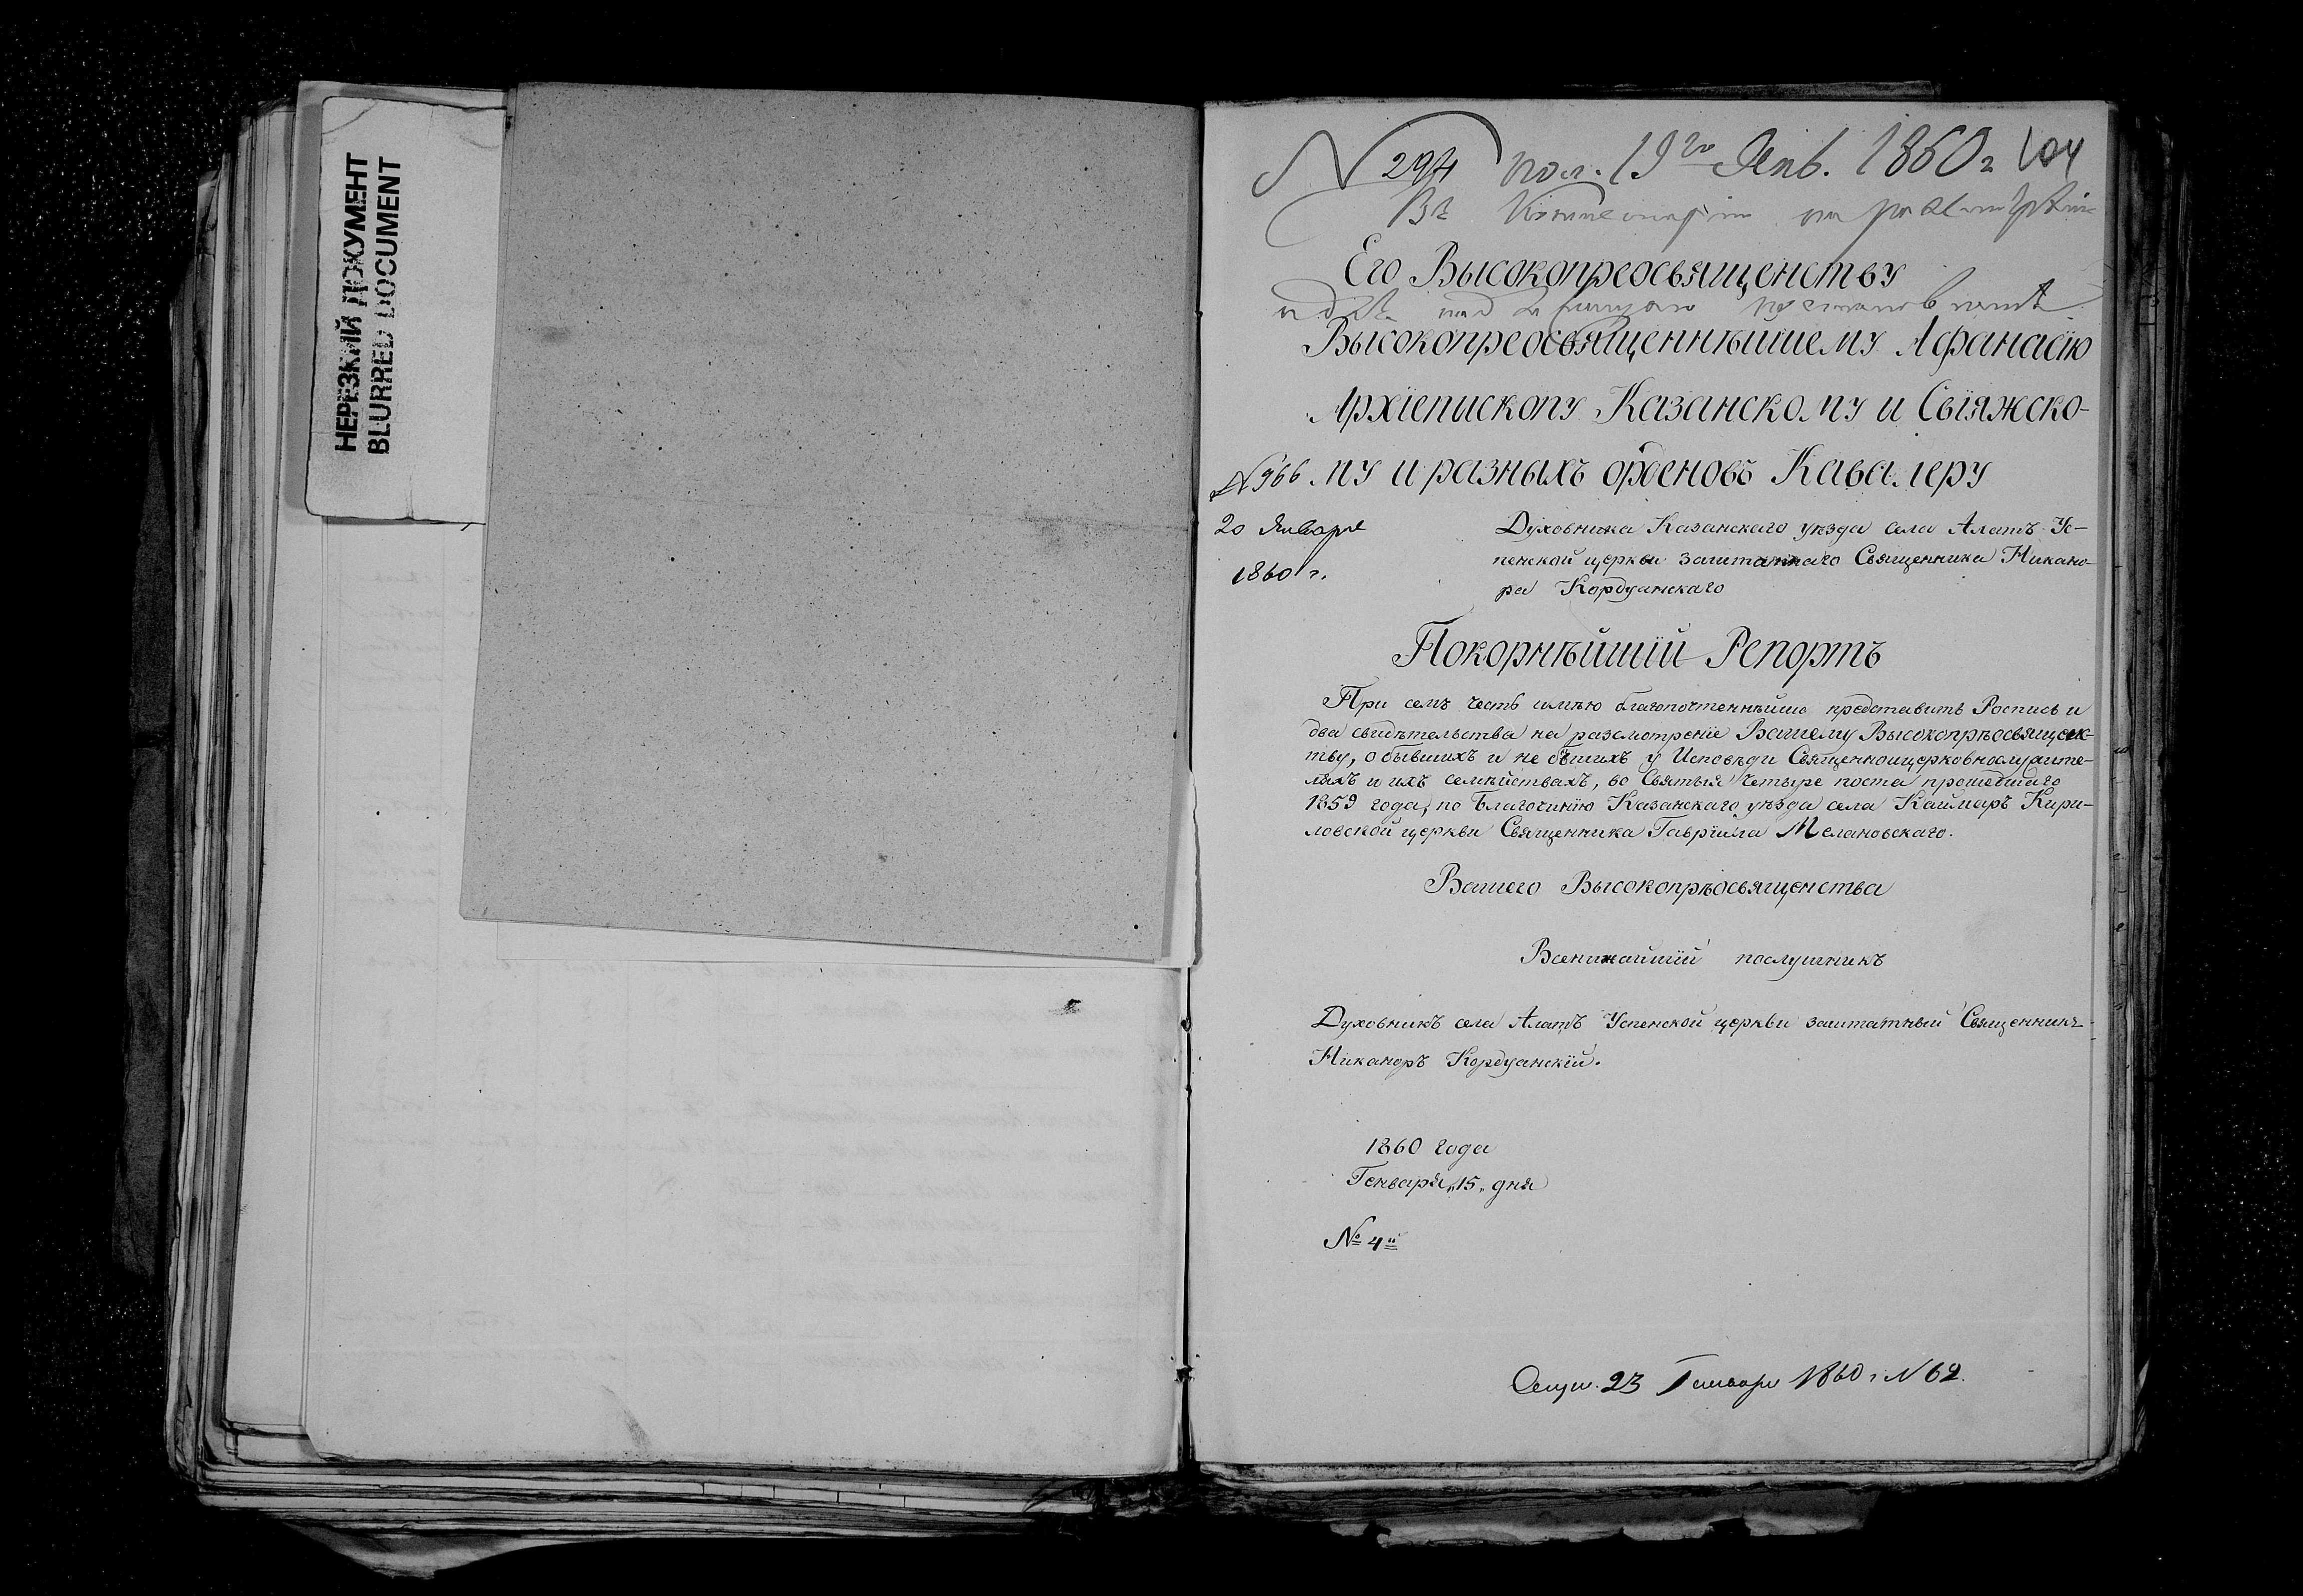 НЕРЕЗКИЙ ДОКУМЕНТ
BLURRED DOCUMENT
N 294 пол. 19го Янв. 1860 г. 104
Въ Консисторію на разсмотрѣніе
Его Высокопреосвященству
Высокопреосвященнѣйшему Аѳанасію
Архіепископу Казанскому и Свіяжско-
му и разныхъ орденовъ Кавалеру
N 966
20 Января
1860 г.
Духовника Казанскаго уѣзда села Алатъ Ус-
пенской церкви заштатнаго Священника Никано-
ра Кордуанскаго
Покорнѣйшій Репортъ
При семъ честь имѣю благопочтеннѣйше представить Роспись и
два свидѣтельства на разсмотреніе Вашему Высокопрѣосвященс-
тву, о бывшихъ и не бывшихъ у Исповѣди Священноцерковнослужите-
ляхъ и ихъ семѣйствахъ, во Святыя Четыре поста прошедшаго
1859 года, по Благочинію Казанскаго уѣзда села Каймаръ Кири-
ловской церкви Священника Гавріила Мелановскаго.
Вашего Высокопрѣосвященства
Всенижайшій послушникъ
Духовникъ села Алатъ Успенской церкви заштатный Священникъ
Никаноръ Кордуанскій.
1860 года
Генваря „15„ дня
№ 4й
Слуш. 23 Генваря 1860 г. N 62.